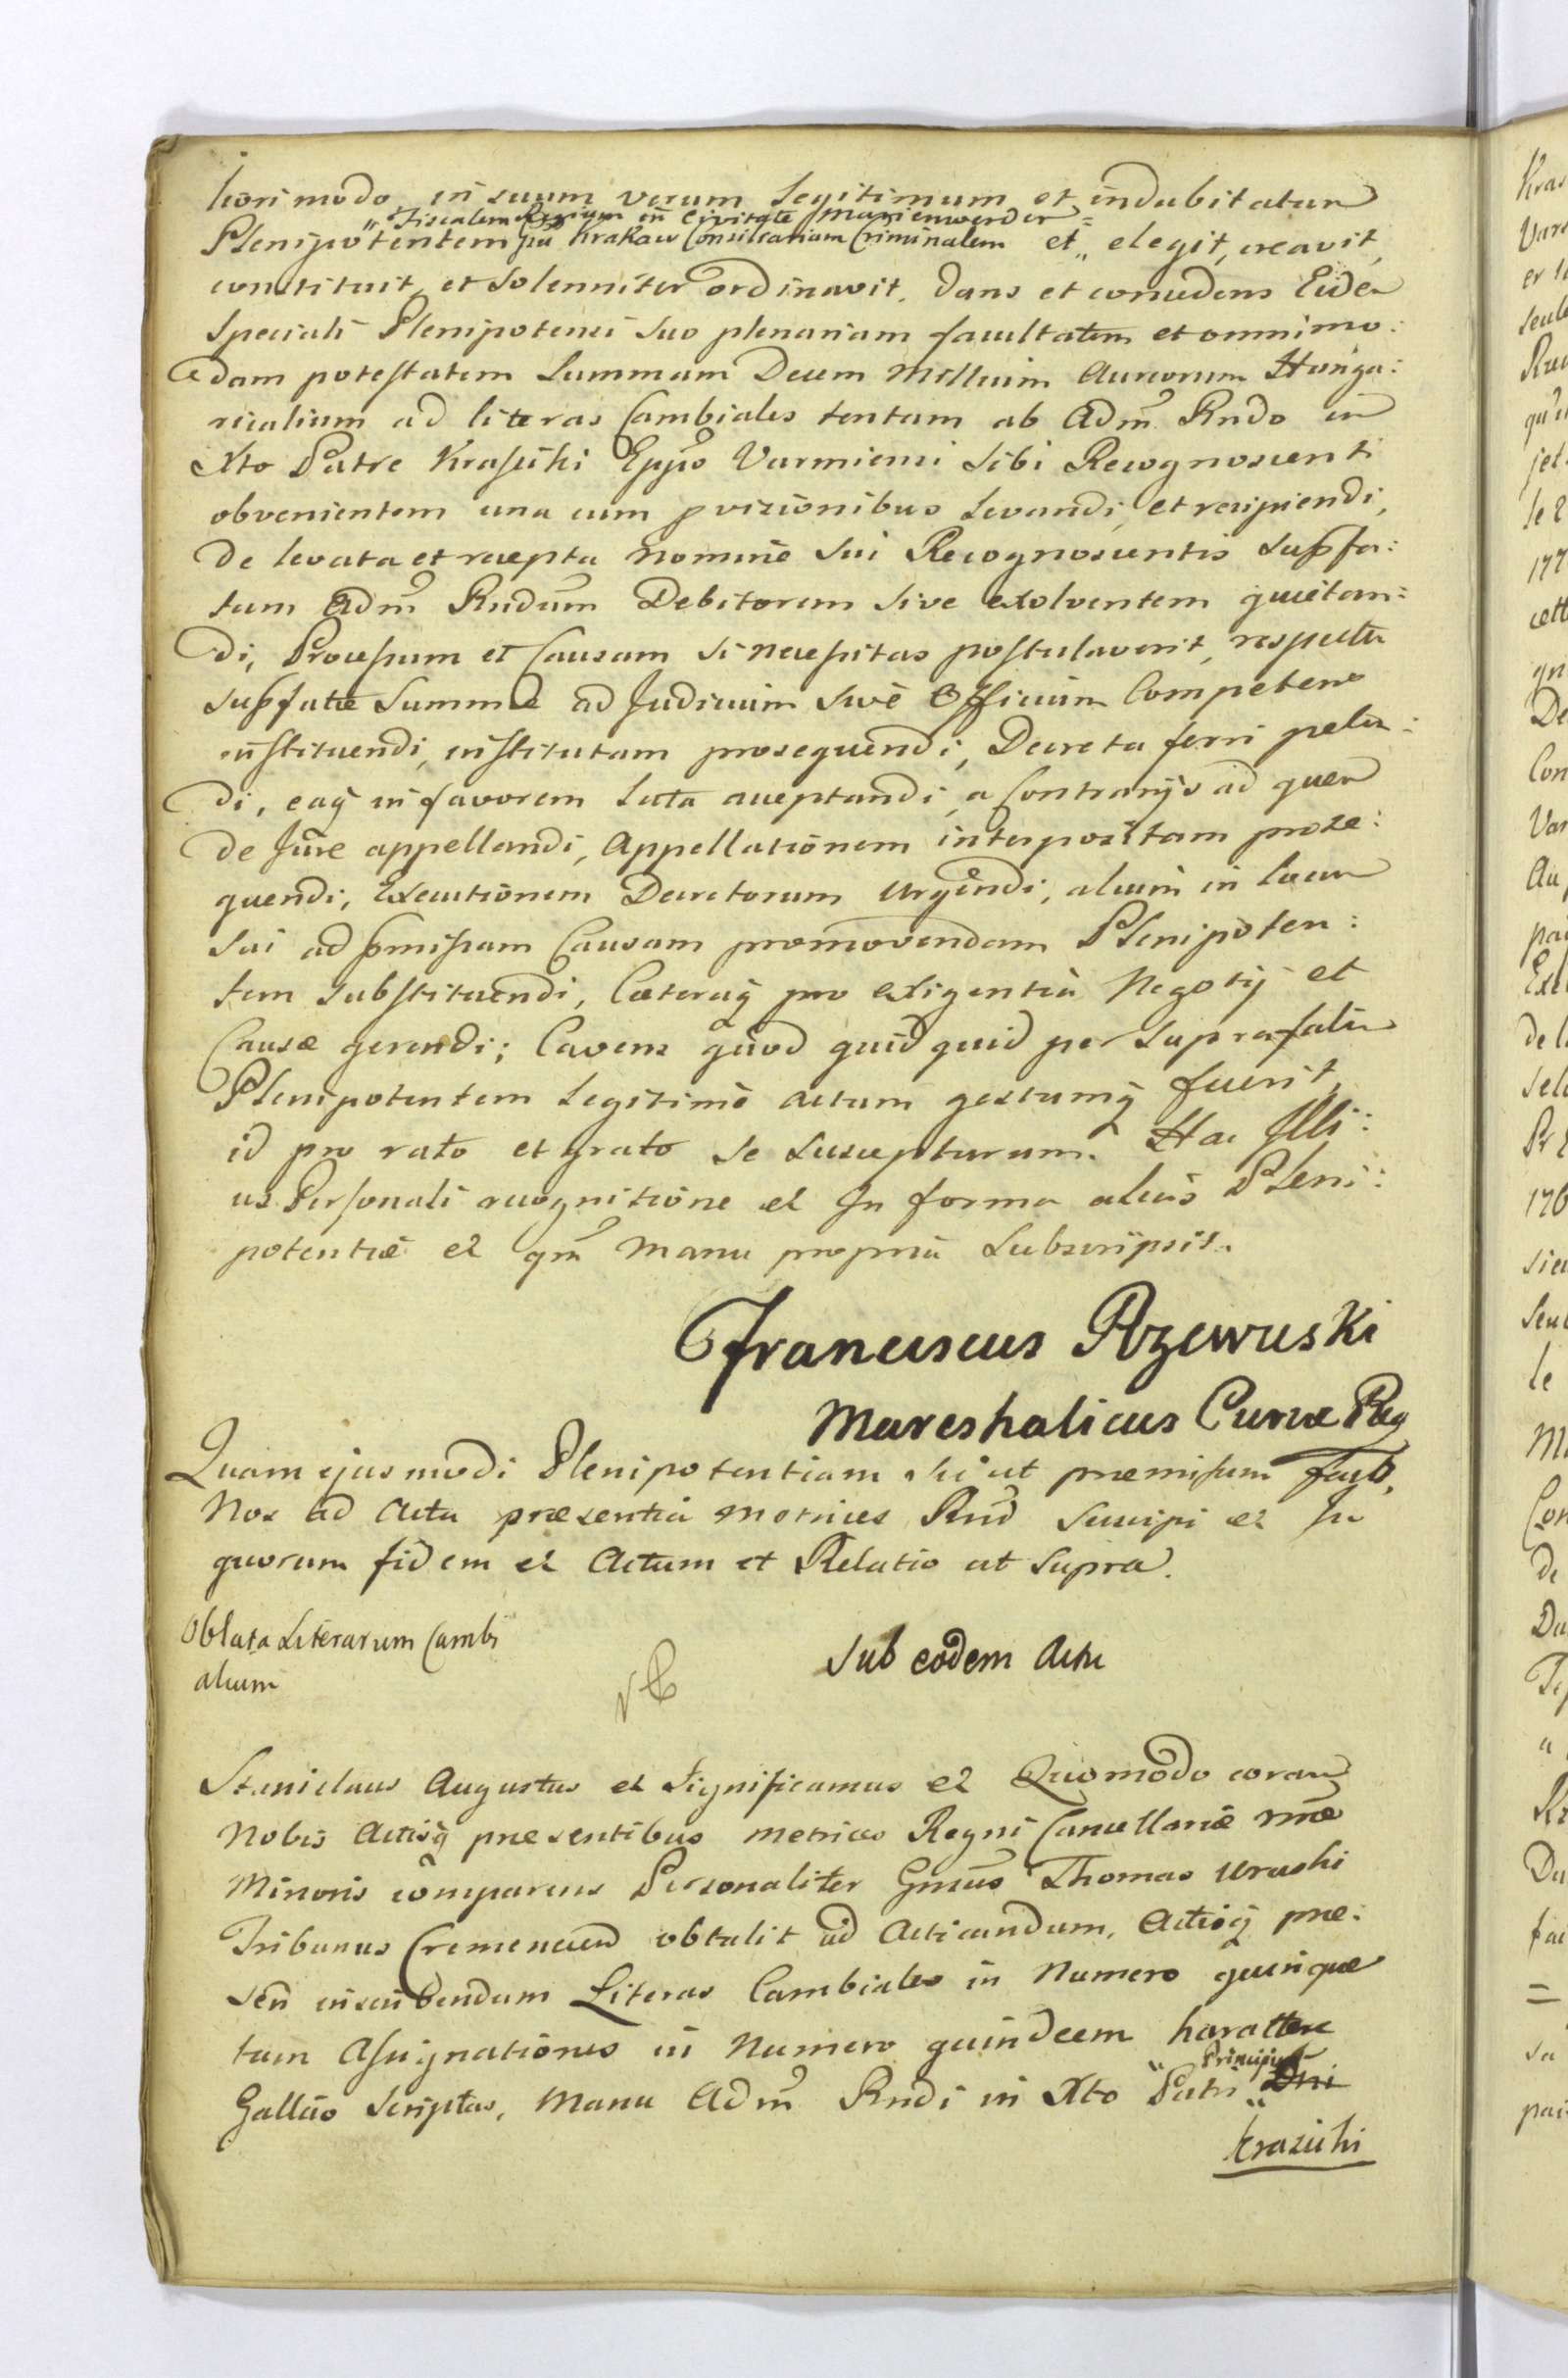 liori modo, in suum verum legitimum et indubitatum
„ Fiscalem Regium in Civitate Marienwerder =
Plenipotentem Krakau Consiliarium Criminalem et „ elegit, creavit,
constituit, et solenniter ordinavit, dans et concedens Eidem
speciali Plenipotenti suo plenariam facultatem et omnimo:
dam potestatem Summam Decem Millium Aureorum Hunga:
ricalium ad literas Cambiales tentam ab Adm Rndo in
Xto Patre Krasicki Eppo Varmiensi sibi Recognoscenti
obvenientem una cum pvizionibus levandi, et recipiendi,
de levata et recepta nomine sui Recognoscentis supfa:
tum Adm Rndum Debitorem sive exolventem quietan:
di, Processum et Causam si necessitas postulaverit, respectu
supfatæ Summæ ad Judicium sive Officium Competens
instituendi, institutam prosequendi, Decreta ferri peten:
di, eaq in favorem lata acceptandi, a Contrarijs ad quem
de Jure appellandi, Appellationem interpositam prose:
quendi, Executionem Decretorum urgendi, alium in locum
sui ad pmissam Causam promovendam Plenipoten:
tem substituendi, Cæteraq pro exigentia Negotij et
Causæ gerendi; Cavens quod quidquid per suprafatum
Plenipotentem legitime actum gestumq fuerit,
id pro rato et grato se suscepturum. Hac Illi:
us Personali recognitione et In forma alias Pleni:
potentiæ et qm manu propria subscripsit.
Franciscus Rzewuski
Mareshalicus Curiæ Reg
Quam ejusmodi Plenipotentiam sicut præmissum fact.
Nos ad Acta præsentia Metrices Rnd suscipi et In
quorum fidem et Actum et Relatio ut supra.
Oblata Literarum Cambi
alium
Sub eodem Actu
Stanislaus Augustus et significamus et Quomodo coram
Nobis Actisq præsentibus Metrices Regni Cancellariæ nræ
Minoris comparens Personaliter Gnsus Thomas Uraski
Tribunus Cremenecen obtulit ad Acticandum, Actisq præ:
sen inscribendum Literas Cambiales in Numero quinque
tum Assignationes in Numero quindecem harattere
„ Principis
Gallico scriptas, manu Adm Rndi in Xto Patri „ Dni
Krasicki